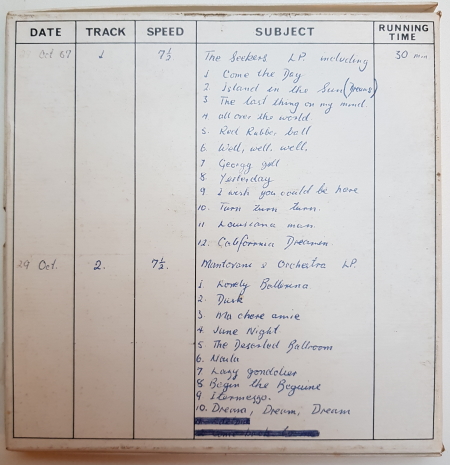 DATE TRACK SPEED SUBJECT RUNNING TIME
Oct 67 1 7½ The Seekers LP. including 30 min
1 Come the Day
2 Island in the Sun (Dreams)
3 The last thing on my mind.
4. all over the world.
5. Red Rubber ball
6. Well, well. well.
7 Georgy girl
8 Yesterday
9 I wish you could be here
10. Turn turn turn.
11 Louisiana man.
12. California Dreamen
29 Oct. 2. 7½. Mantovani & Orchestra LP.
1 Lonely Ballerina
2. Dusk
3. Ma chere amie
4. June Night
5 The Deserted Ballroom
6. Naila
7 Lazy gondolier
8 Begin the Beguine
9 Itermezzo.
10. Dream, Dream, Dream